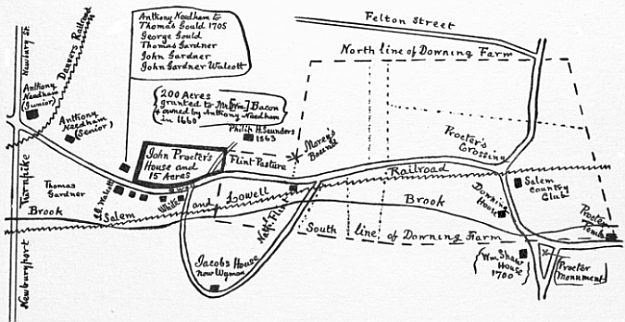 Felton Street
Anthony Needham to
Thomas Gould 1705
George Gould
Thomas Gardner
John Gardner
John Gardner Walcott
North line of Downing Farm
Newbury St.
Danvers Railroad
Anthony
Needham
(Junior)
Anthony
Needham
(Senior)
200 Acres
granted to Mr [Wm] Bacon
owned by Anthony Needham
in 1660
Philip H. Saunders
1863
John Procter's
House and
15 Acres
Flint Pasture
Morey's
Bounds
Procter's
Crossing
Thomas
Gardner
White
Salem and Lowell Railroad
Nath'l Flint
Brook
Brook
Downing
House
Salem
Country
Club
Newburyport Turnpike
South line of Downing Farm
Procter
Tomb
Jacobs House
now Wyman
Wm. Shaw
House
1700
Procter
Monument